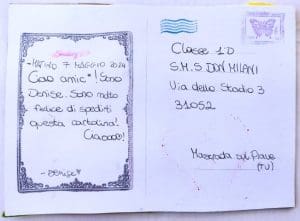 - MARTINO 7 MAGGIO 2024
Ciao amic*! Sono
Denise. Sono molto
felice di spedirti
questa cartolina!
Ciaoooo!
- Denise
Classe 1D
S.M.S DON MILANI
Via dello Stadio 3
31052
Maserada sul Piave
(TV)